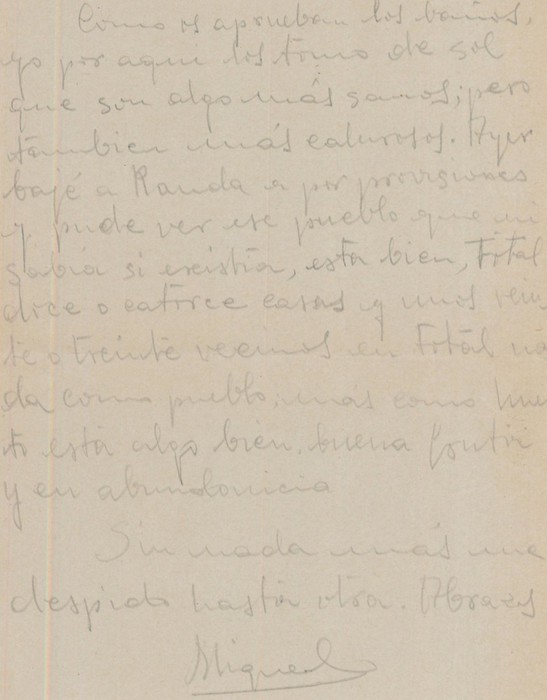 Como os aprueban los baños,
yo por aqui los tomo de sol
que son algo más sanos; pero
tambien más calurosos. Ayer
bajé a Randa a por provisiones
y pude ver ese pueblo que ni
sabia si existia, esta bien, Total
doce o catorce casas y unos vein
te o treinta vecinos en total na
da como pueblo; más como hue
to está algo bien. buena fruta
y en abundonicia
Sin nada más me
despido hasta otra. Abrazos
Miguel